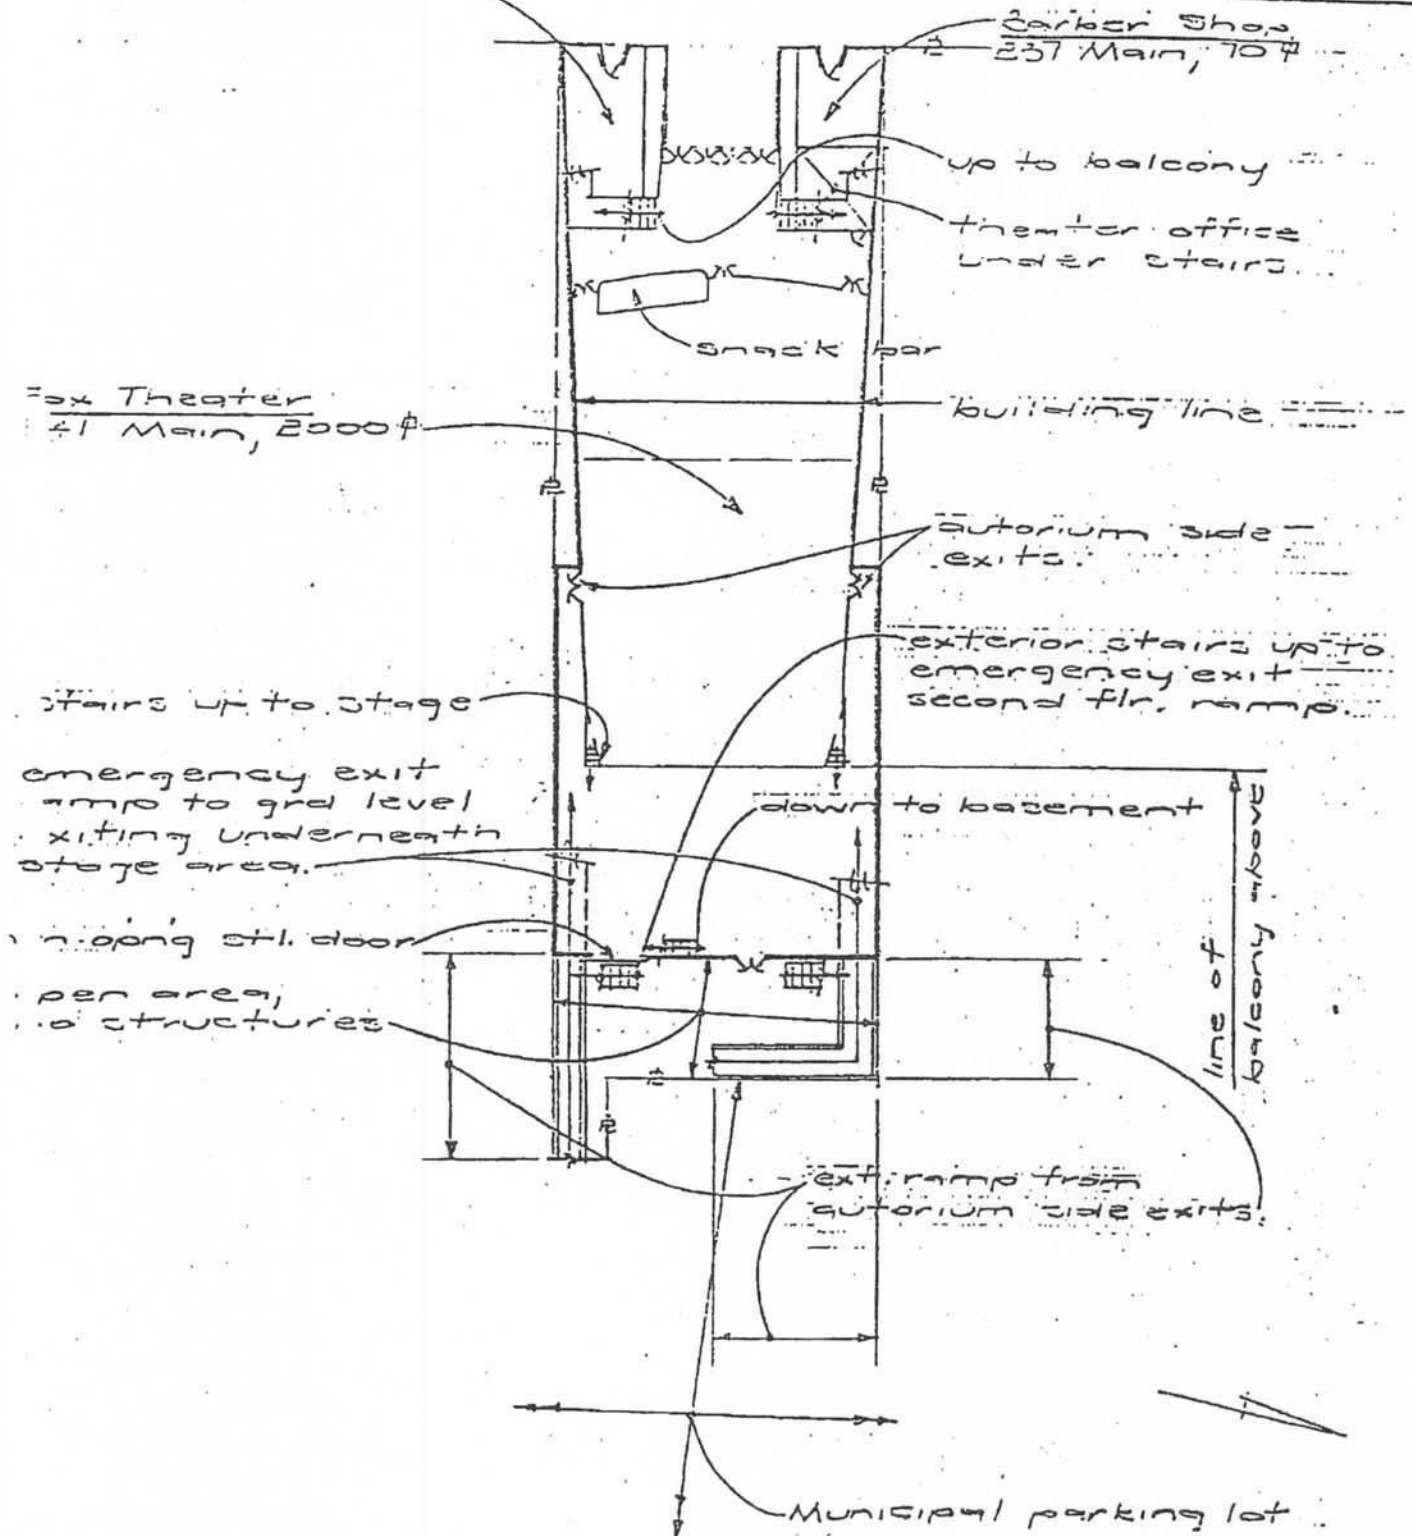 Barber Shop
237 Main, 70 ⌀
up to balcony
theater office
under stairs.
snack bar
Theater
Main, 2000 ⌀
building line
autorium side
exits.
exterior stairs up to
emergency exit
second flr. ramp.
stairs up to stage
emergency exit
amp to grd level
xiting underneath
stage area.
down to basement
line of
balcony above
n op'n'g stl. door
pen area,
o structures
ext. ramp from
autorium side exits.
Municipal parking lot